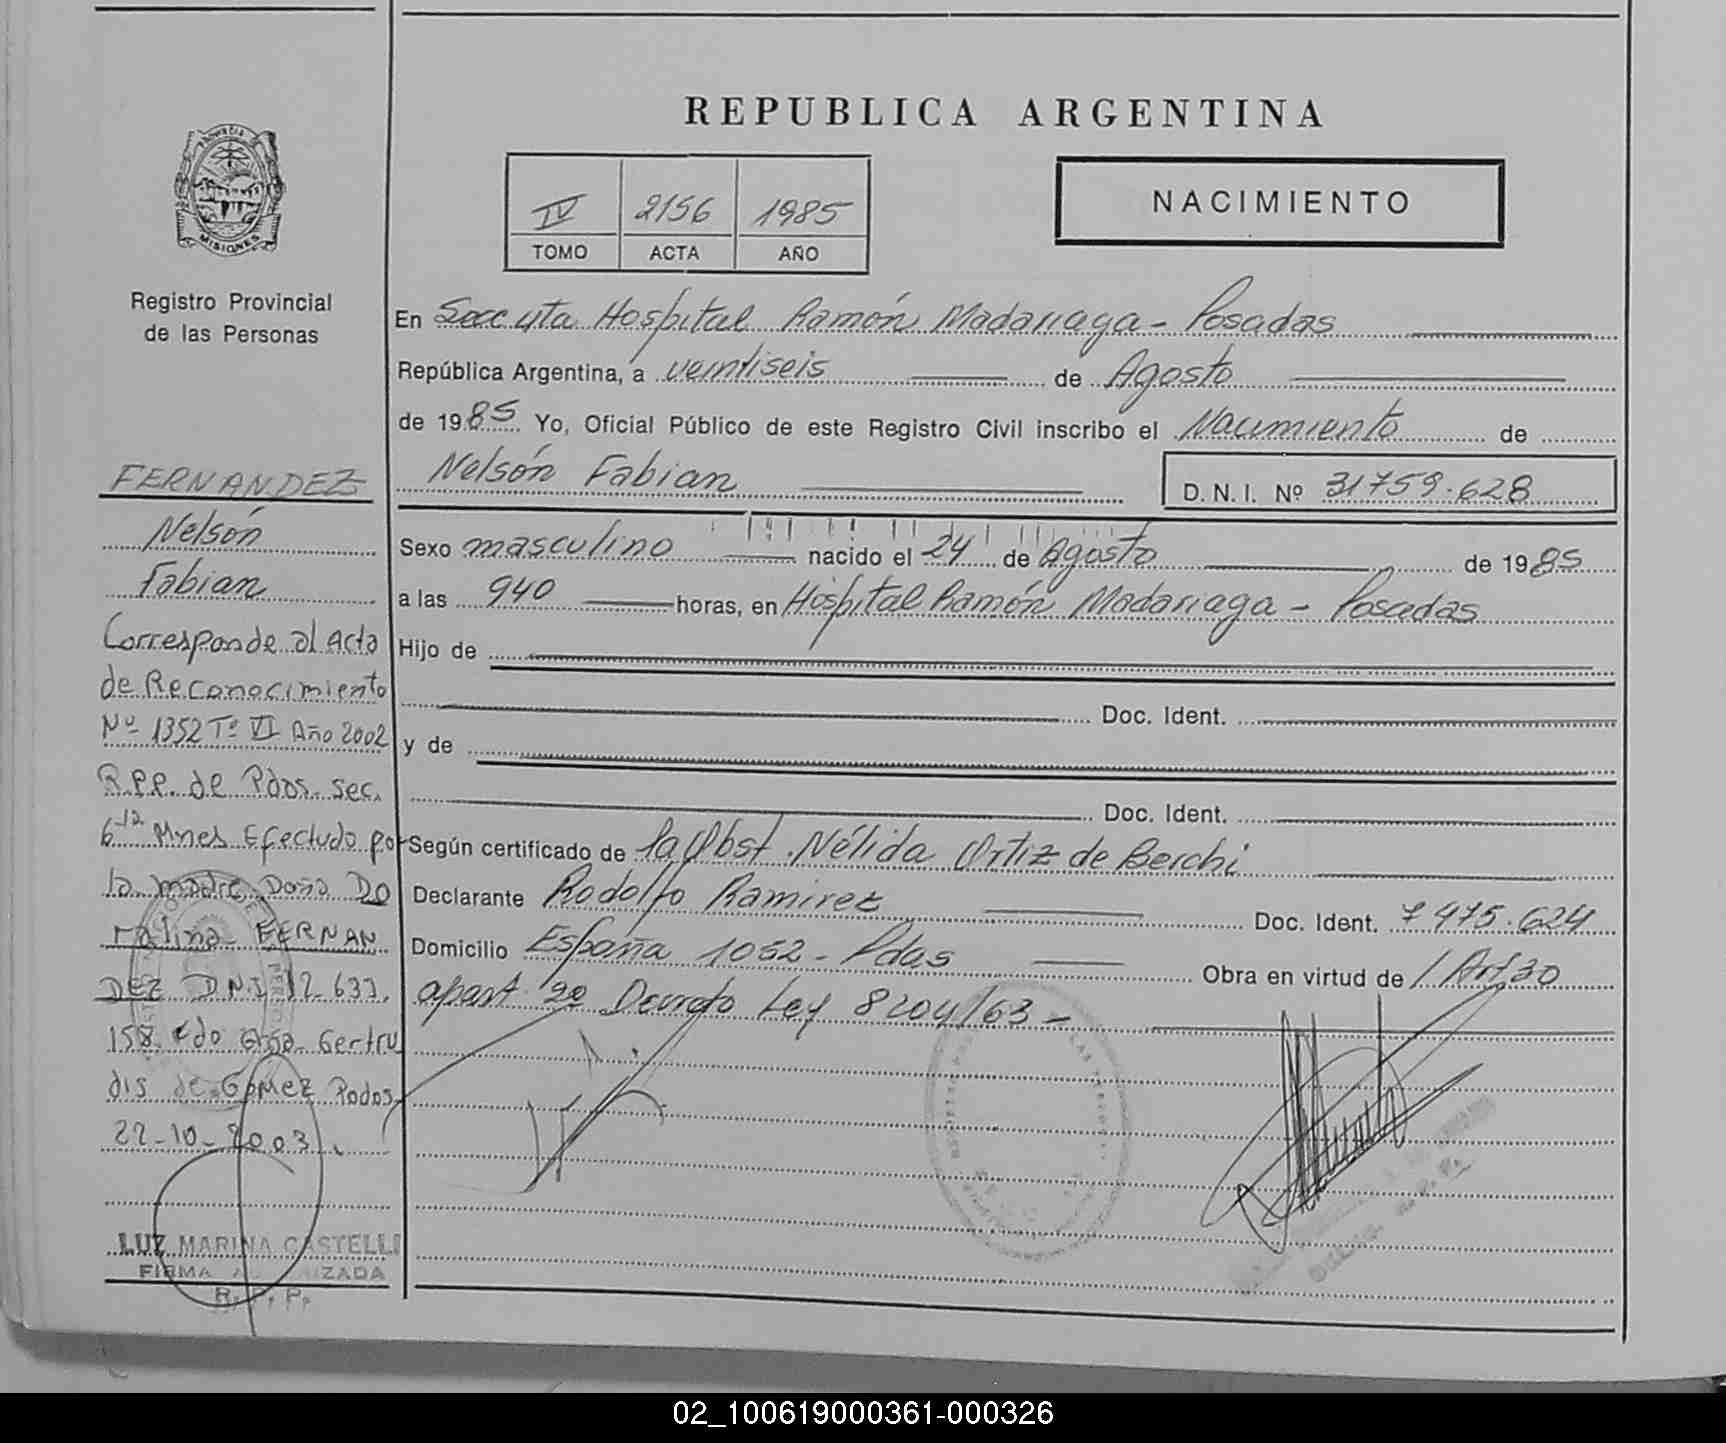 REPUBLICA ARGENTINA
PROVINCIA
MISIONES
Registro Provincial
de las Personas
IV 2156 1985
TOMO ACTA AÑO
NACIMIENTO
En Hospital Ramón Madariaga - Posadas
República Argentina, a veintiseis de Agosto
de 1985 Yo, Oficial Público de este Registro Civil inscribo el Nacimiento de
Nelsón Fabian
D. N. I. Nº 31759.628
Sexo masculino nacido el 24 de Agosto de 1985
a las 940 horas, en Hospital Ramón Madariaga - Posadas
Hijo de
Doc. Ident.
y de
Doc. Ident.
Según certificado de la Obst. Nélida Ortiz de Berchi
Declarante Rodolfo Ramirez Doc. Ident. 7475.624
Domicilio España 1052 - Pdas Obra en virtud de / Art 30
apart 2º Decreto Ley 8204/63 -
FERNANDEZ
Nelsón
Fabian
Corresponde al Acta
de Reconocimiento
Nº 1352 Tº VI Año 2002
R.P.P. de Pdas. sec.
6 Mnes Efectudo por
la madre Doña DO
ralina FERNAN
DEZ D.N.I 12.633.
158 Gertru
dis de GOMEZ Podas
22-10-2003.
LUZ MARINA CASTELLI
FIRMA AUTORIZADA
R. P. P.
02_100619000361-000326